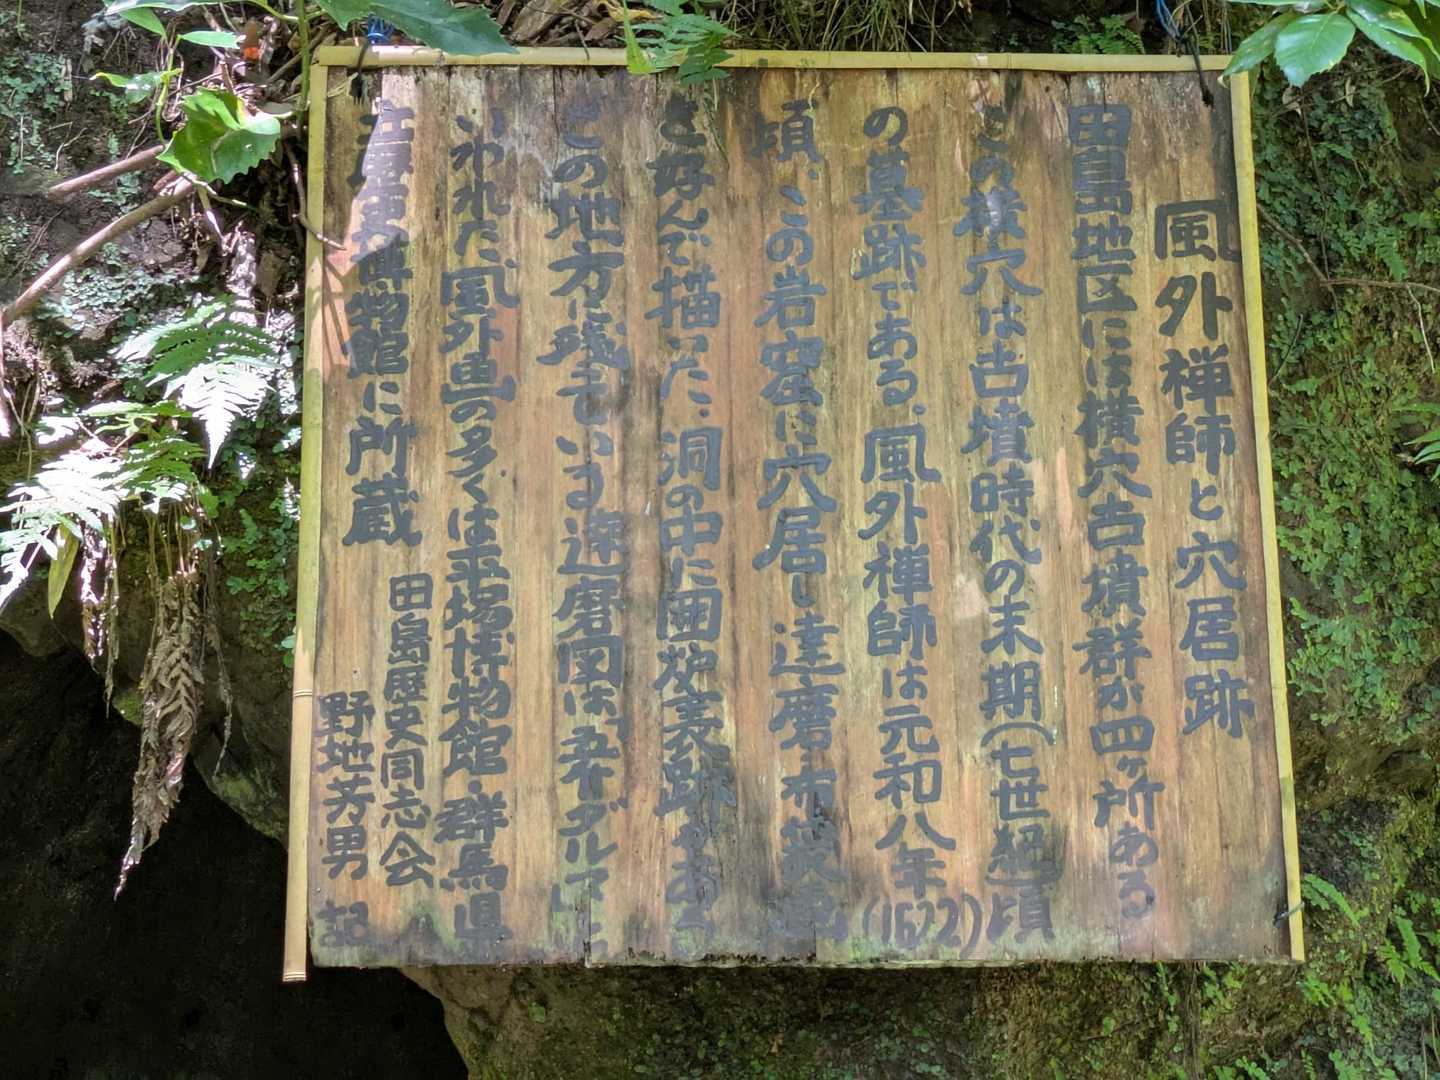 風外禅師と穴居跡
田島地区には横穴古墳群が四ヶ所ある
この横穴は古墳時代の末期(七世紀)頃
の墓跡である、風外禅師は元和八年(1622)
頃、この岩窟に穴居し達磨・布袋画
を好んで描いた、洞の中に囲炉裏跡がある
この地方に残している達磨図は、
いわれた、風外画の多くは平塚博物館・群馬県
立歴史博物館に所蔵
田島歴史同志会
野地芳男 記